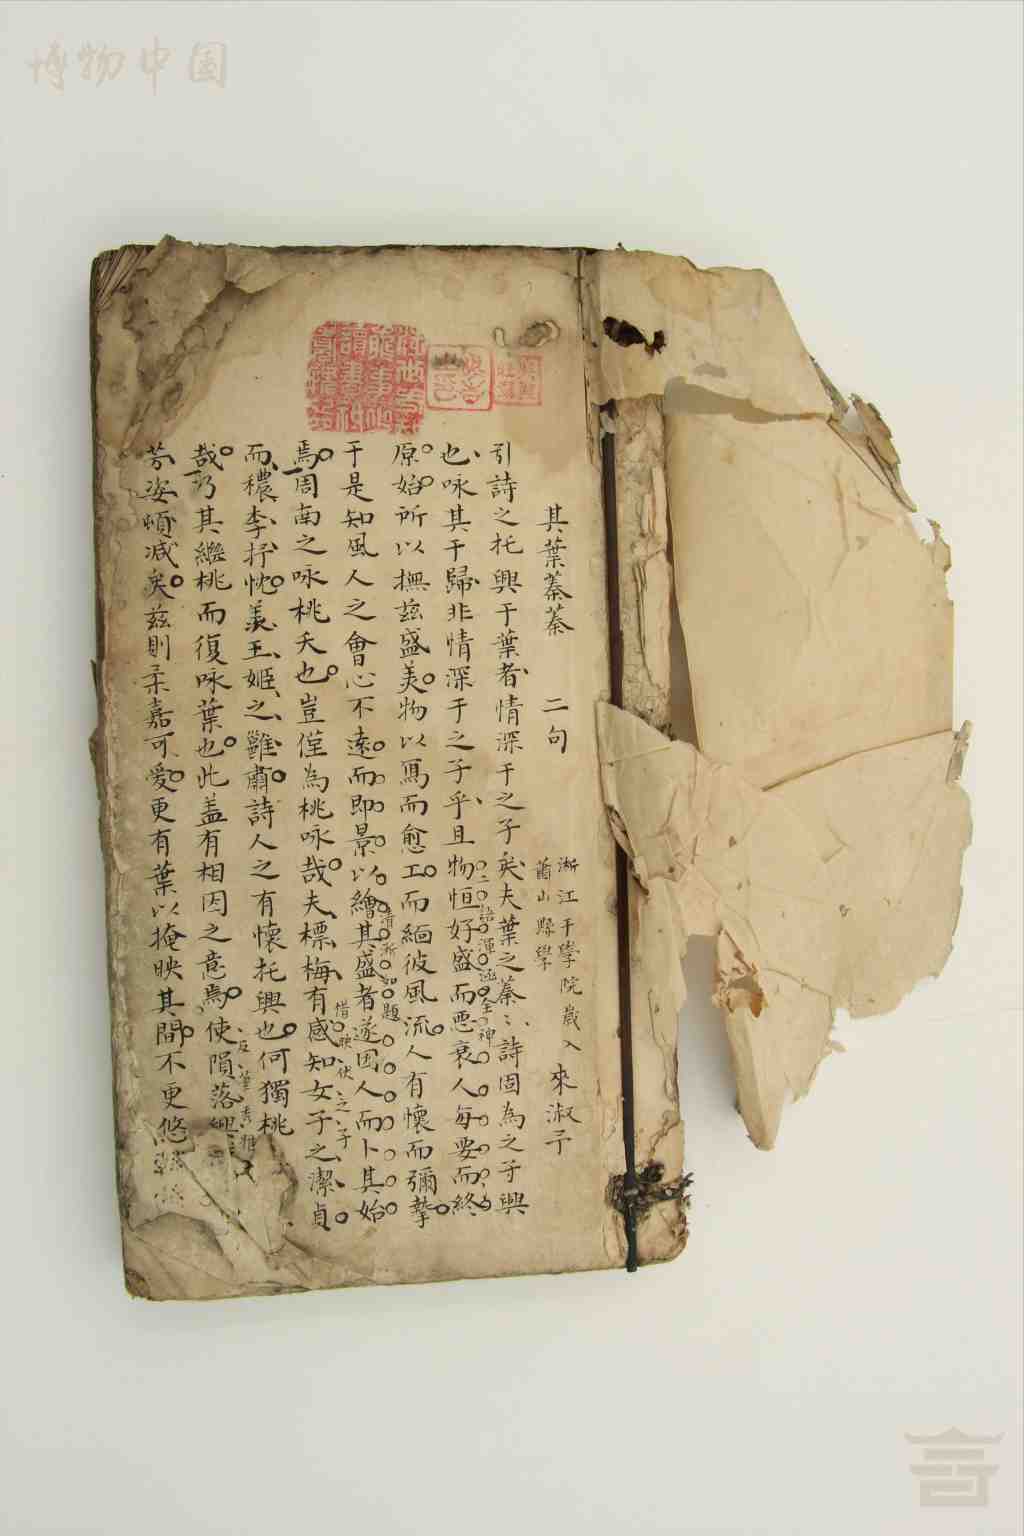 博物中国
其葉蓁蓁 二句
浙江于學院歲入
蕭山縣學
來淑予
引詩之托興于葉者情深于之子矣夫葉之蓁〻詩固為之子興
也咏其于歸非情深于之子乎且物恒好盛而悪衰人每要而終
二語渾涵全神
原始所以撫茲盛美物以寫而愈工而緬彼風流人有懷而彌摯
于是知風人之會心不遠而即景以繪其盛者遂因人而卜其始
清淅
題
焉周南之咏桃夭也豈僅為桃咏哉夫標梅有感知女子之潔貞
惜映伏之子
而穠李抒忱美王姬之雝肅詩人之有懷托興也何獨桃
哉乃其繼桃而復咏葉也此盖有相因之意焉使隕落
反筆
芬姿頓減矣茲則柔嘉可愛更有葉以掩映其間不更悠